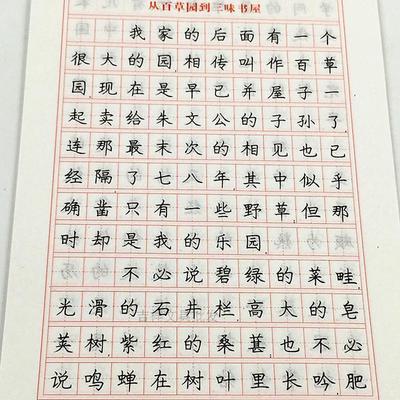 从百草园到三味书屋
我家的后面有一个
很大的园相传叫作百草
园现在是早已并屋子一
起卖给朱文公的子孙了
连那最末次的相见也已
经隔了七八年其中似乎
确凿只有一些野草但那
时却是我的乐园.
不必说碧绿的菜畦
光滑的石井栏高大的皂
荚树紫红的桑葚也不必
说鸣蝉在树叶里长吟肥